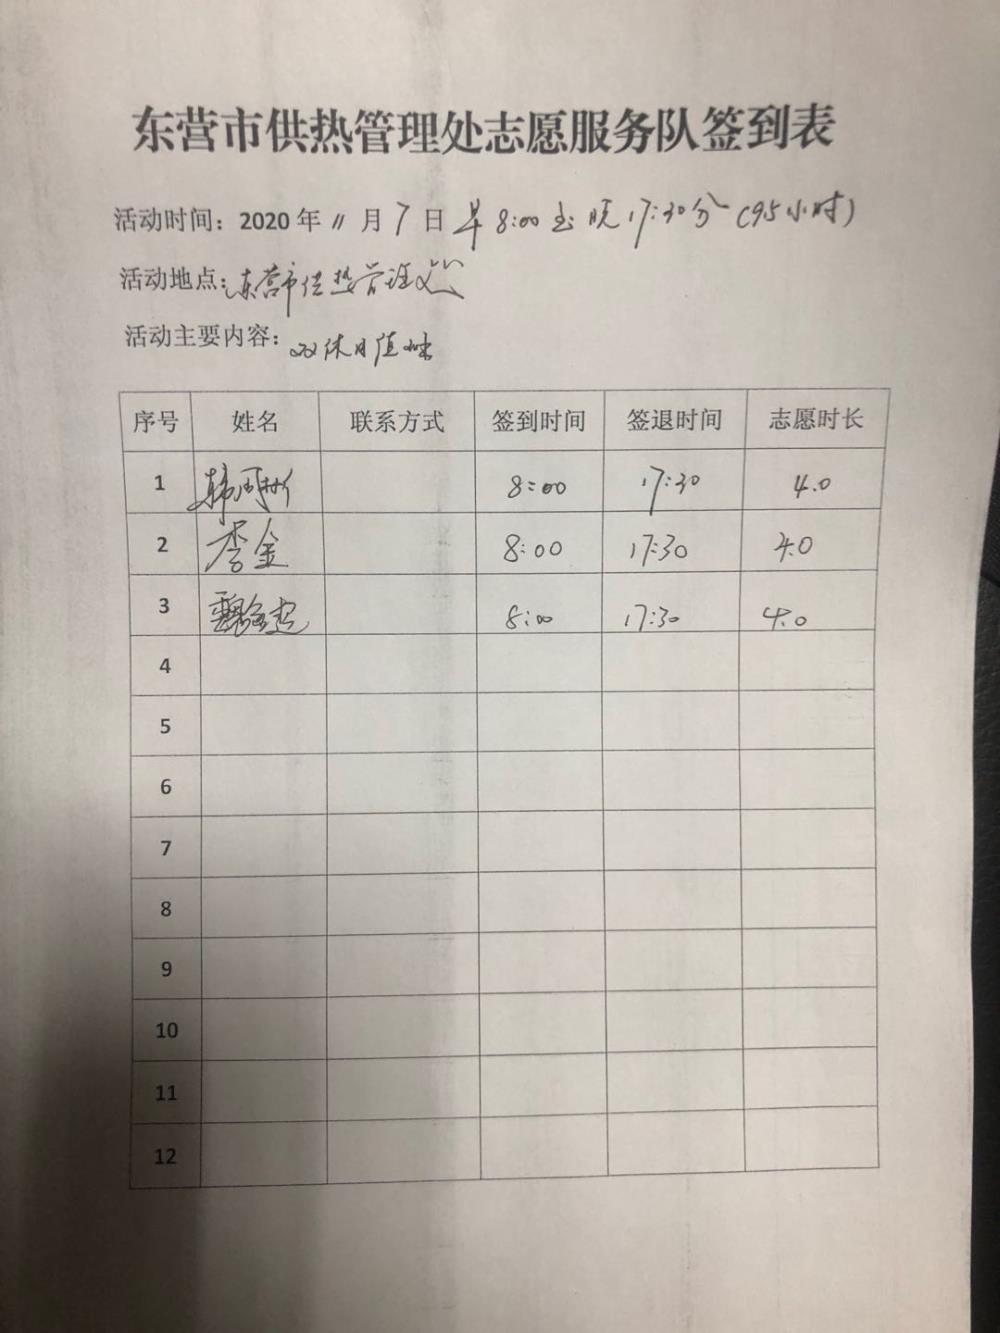 东营市供热管理处志愿服务队签到表
活动时间：2020 年 11 月 7 日 早 8:00 至 晚 17:30分 (9.5小时)
活动地点：东营市供热管理处
活动主要内容：双休日值班
序号 姓名 联系方式 签到时间 签退时间 志愿时长
1 8:00 17:30 4.0
2 李金 8:00 17:30 4.0
3 8:00 17:30 4.0
4
5
6
7
8
9
10
11
12